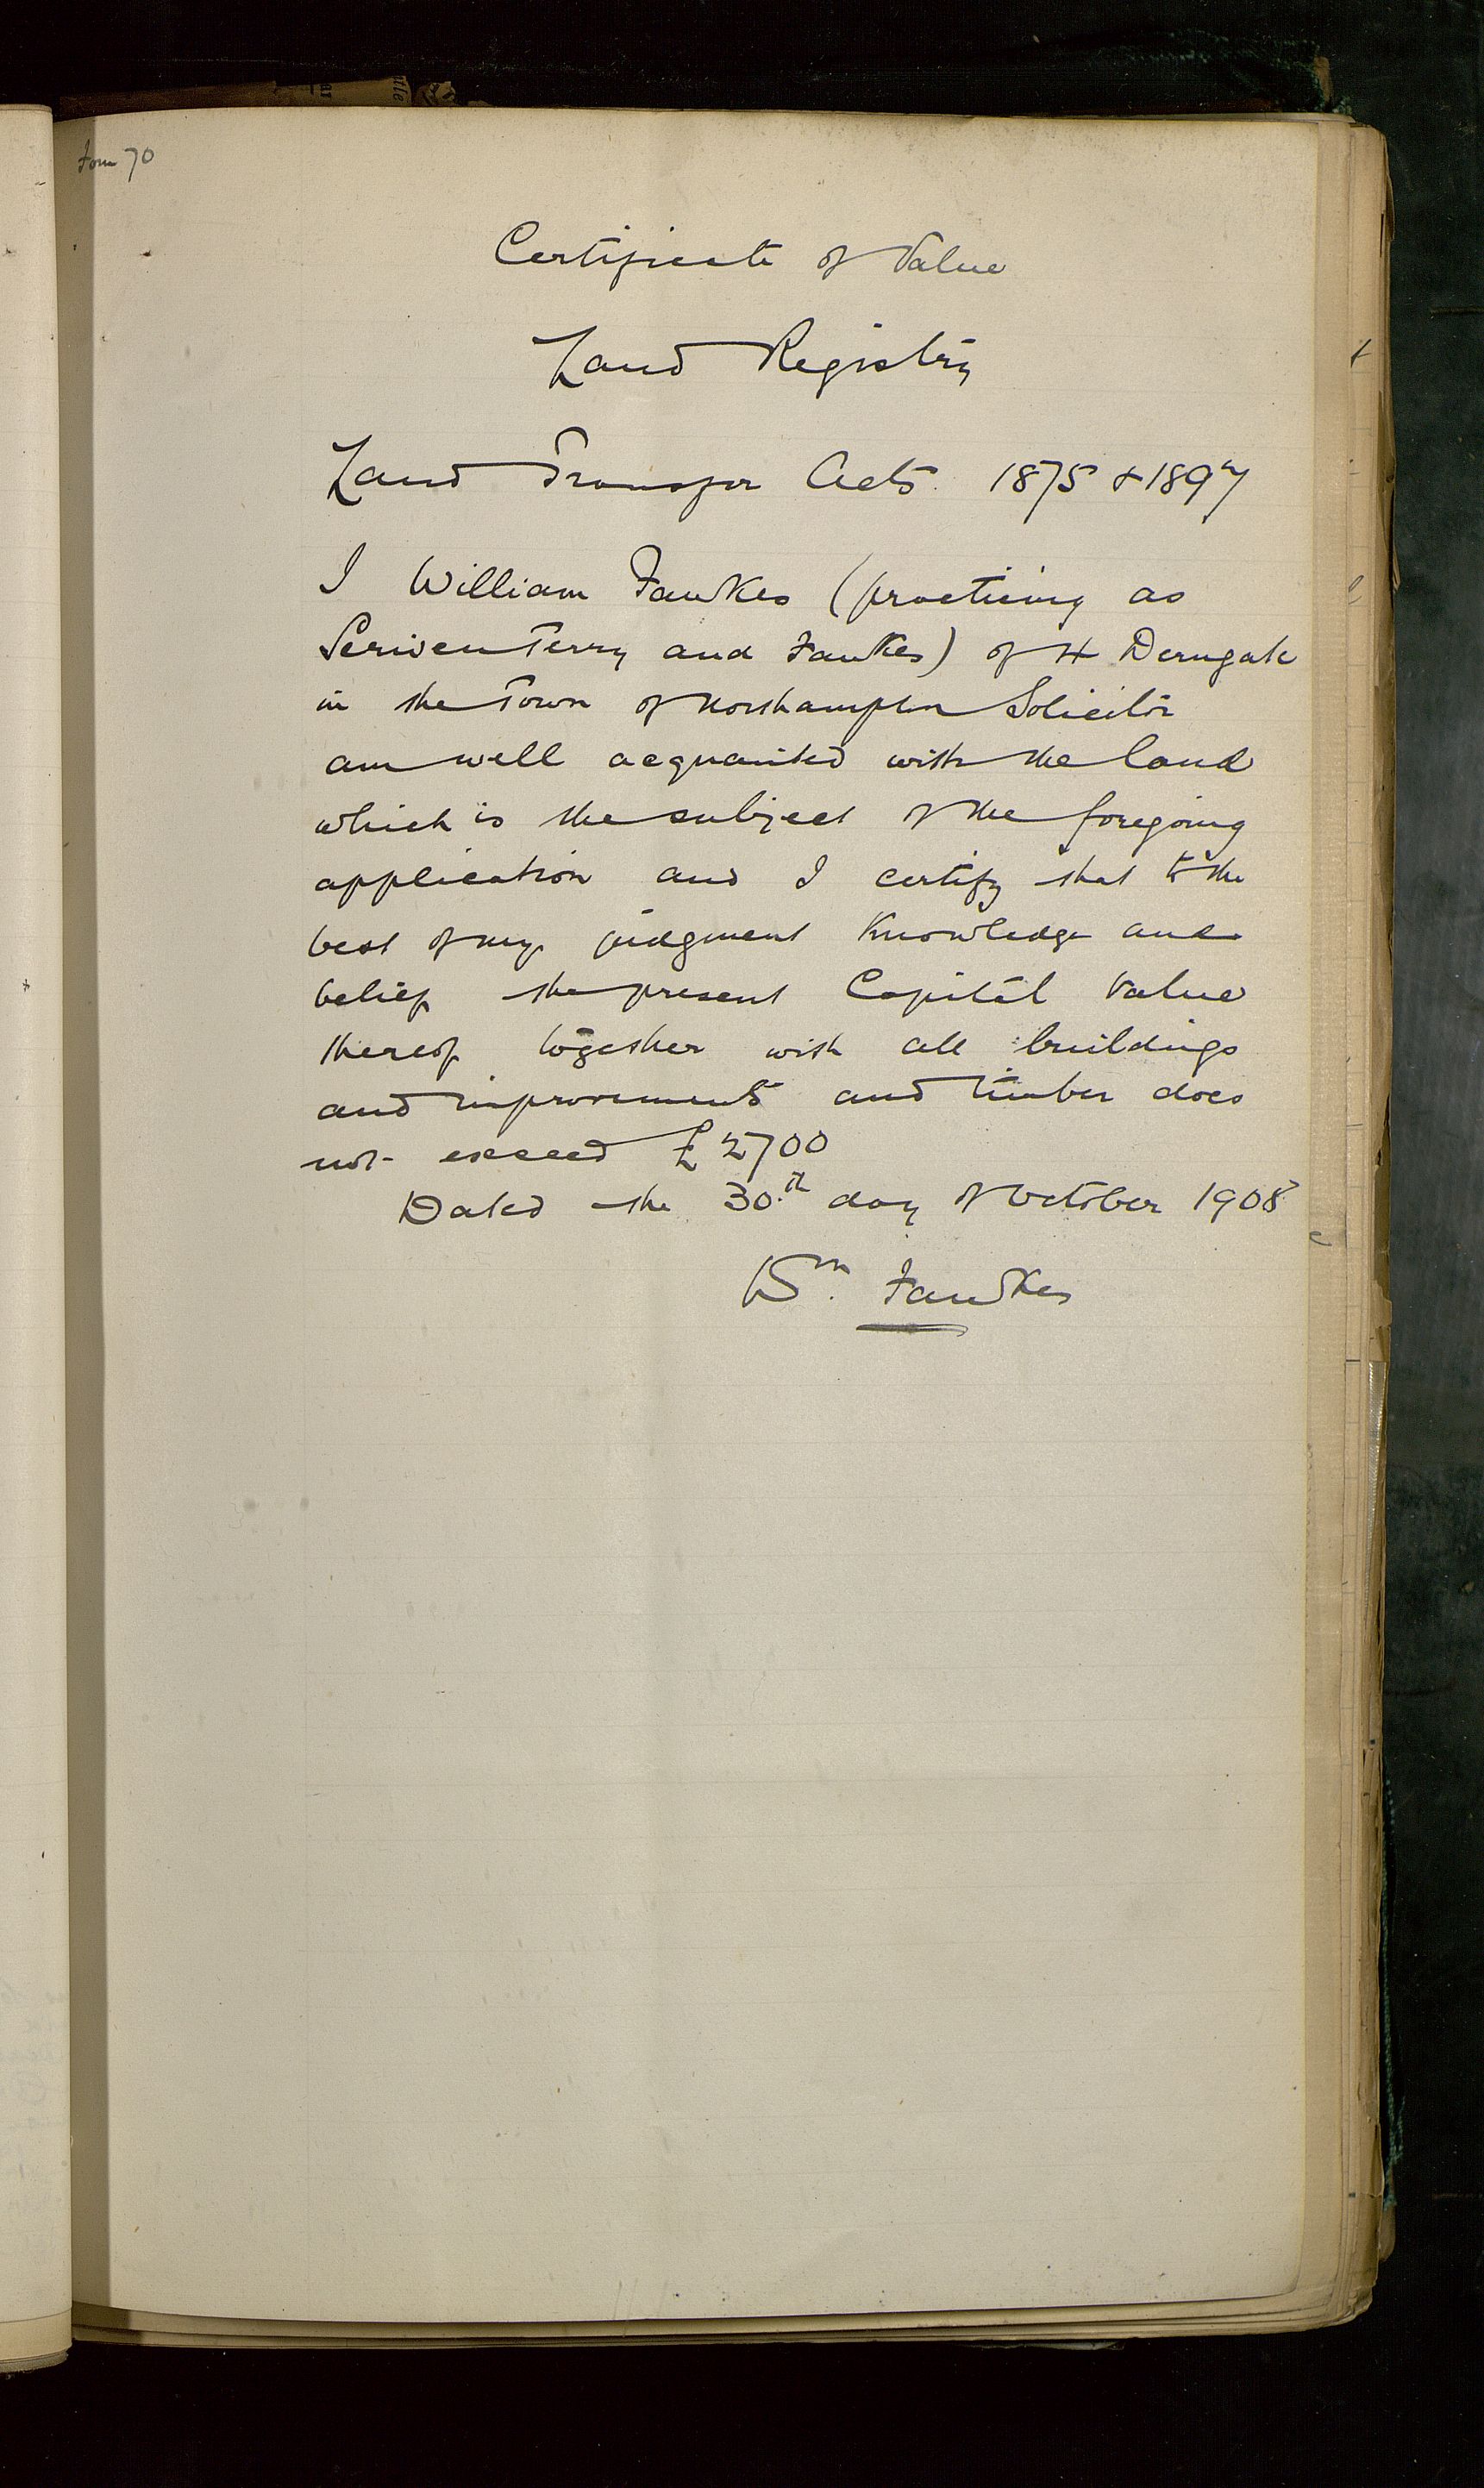 Form 70
Certificate of Value
Land Registry
Land Transfer Acts 1875 & 1897
I William Fawkes (practicing as
Scriven Terry and Fawkes) of 4 Derngate
in the Town of Northampton Solicitor
am well acquainted with the land
which is the subject of the foregoing
application and I certify that to the
best of my judgment Knowledge and
belief the present Capital Value
thereof together with all buildings
and improvements and timber does
not exceed £2700
Dated the 30th day of October 1908
Wm. Fawkes